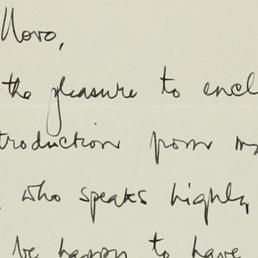 Novo,
the pleasure to encl
troduction from m
who speaks highly
be happy to have